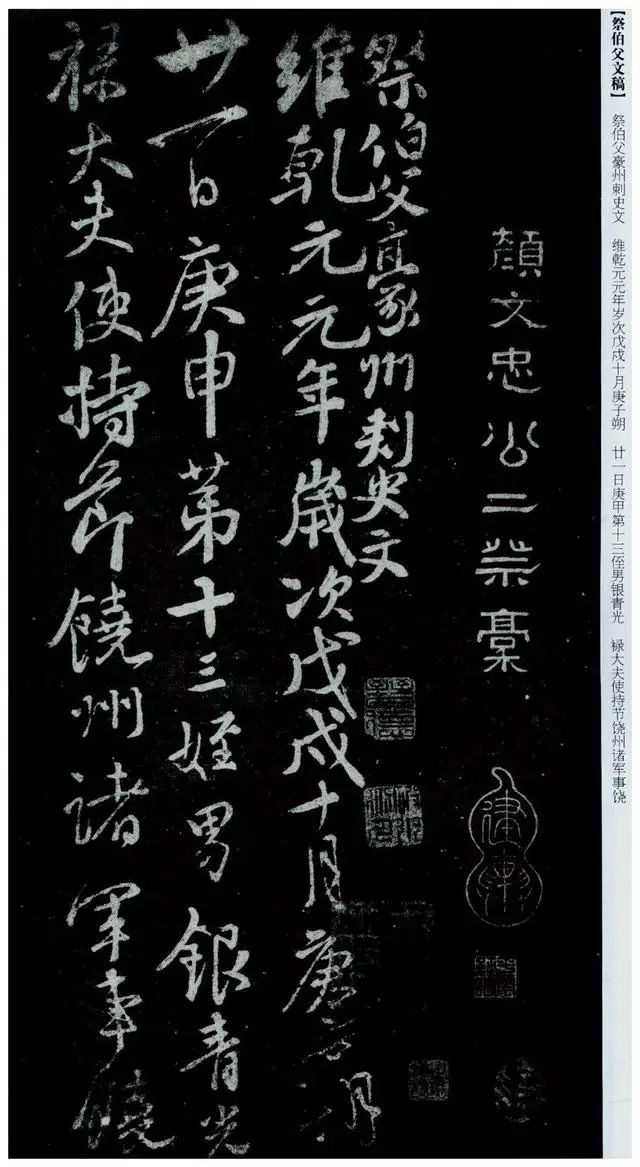 【祭伯父文稿】 祭伯父豪州刺史文 维乾元元年岁次戊戌十月庚子朔 廿一日庚甲第十三侄男银青光 禄大夫使持节饶州诸军事饶
顏文忠公二祭稾
祭伯父豪州刺史文
維乾元元年歲次戊戌十月庚子朔
廿一日庚申苐十三姪男銀青光
禄大夫使持節饒州諸軍事饒